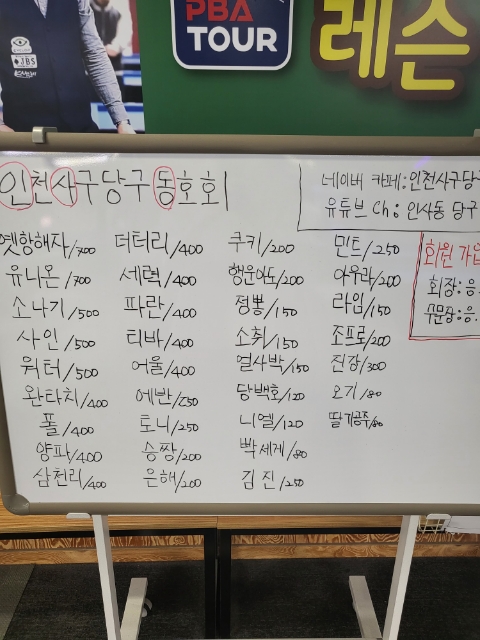 PBA
TOUR
레슨
JBS
인천사구당구동호회
네이버 카페:인천사구당구
유튜브 Ch: 인사동 당구
회원 가입
회장:응.
부문장:응.
옛항해자/700
유니온/700
소나기/500
사인/500
워터/500
완타치/400
폴/400
양파/400
삼천리/400
더터리/400
세력/400
파란/400
티바/400
어울/400
에반/250
토니/250
승짱/200
은해/200
쿠키/200
행운아도/200
정뽕/150
소취/150
열사박/150
당백호/120
니엘/120
빡세게/80
김진/250
민트/250
아우라/200
라임/150
조프로/200
진강/300
오기/80
딸기공주/80